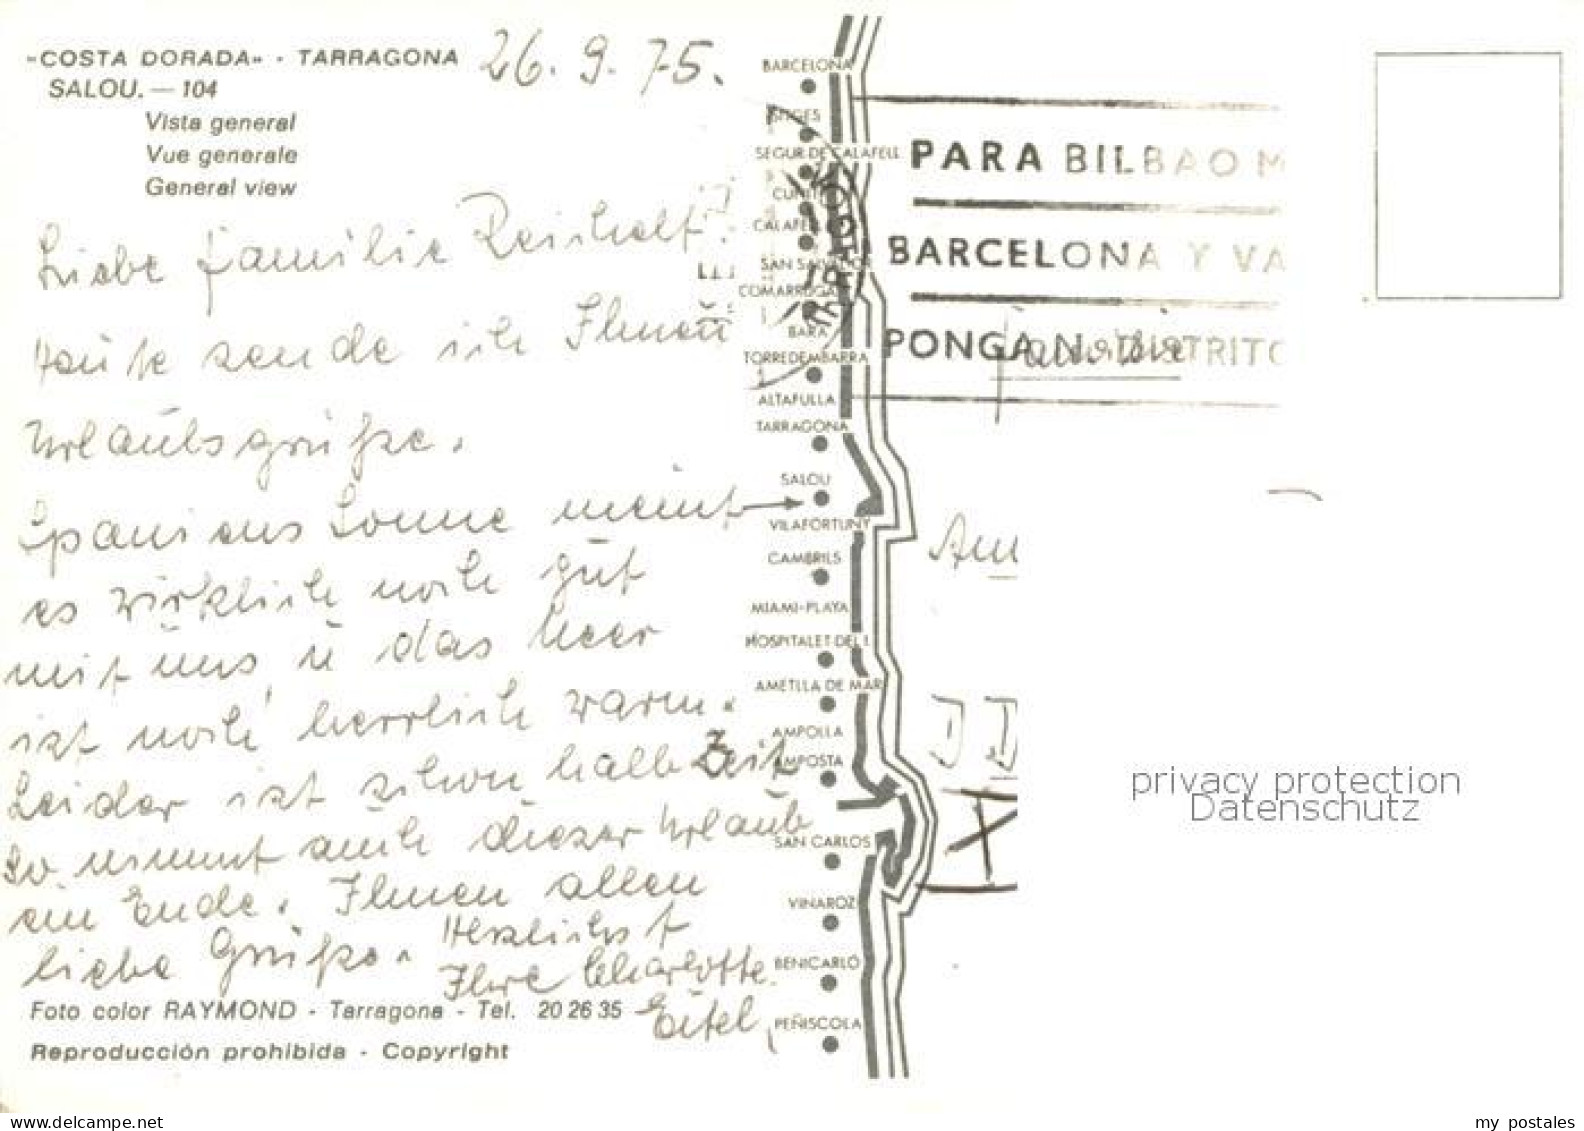 «COSTA DORADA» - TARRAGONA
SALOU. — 104
Vista general
Vue generale
General view
26. 9. 75.
Liebe Familie Reichelt!
Heute sende ich Ihnen
Urlaubsgrüße.
Spaniens Sonne meint
es wirklich noch gut
mit uns, u das Meer
ist noch herrlich warm.
Leider ist schon halb Zeit
So nimmt auch dieser Urlaub
ein Ende. Ihnen allen
liebe Grüße. Herzlichst
Ihre Charlotte
Eitel
Foto color RAYMOND - Tarragona - Tel. 20 26 35
Reproducción prohibida - Copyright
BARCELONA
SITGES
SEGUR DE CALAFELL
CUNIT
CALAFELL
SAN SALVADOR
COMARRUGA
BARA
TORREDEMBARRA
ALTAFULLA
TARRAGONA
SALOU
VILAFORTUNY
CAMBRILS
MIAMI-PLAYA
HOSPITALET DEL I.
AMETLLA DE MAR
AMPOLLA
AMPOSTA
SAN CARLOS
VINAROZ
BENICARLÓ
PEÑISCOLA
PARA BILBAO M
BARCELONA Y VA
PONGA N.º DISTRITO
Familie
D D
privacy protection
Datenschutz
www.delcampe.net
my_postales